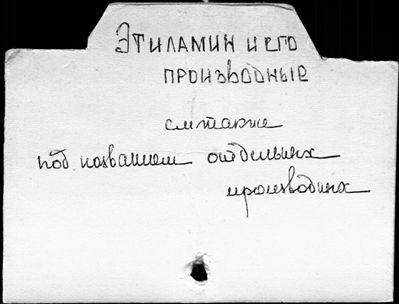 Этиламин и его
производные
см. также
под названием отдельных
производных